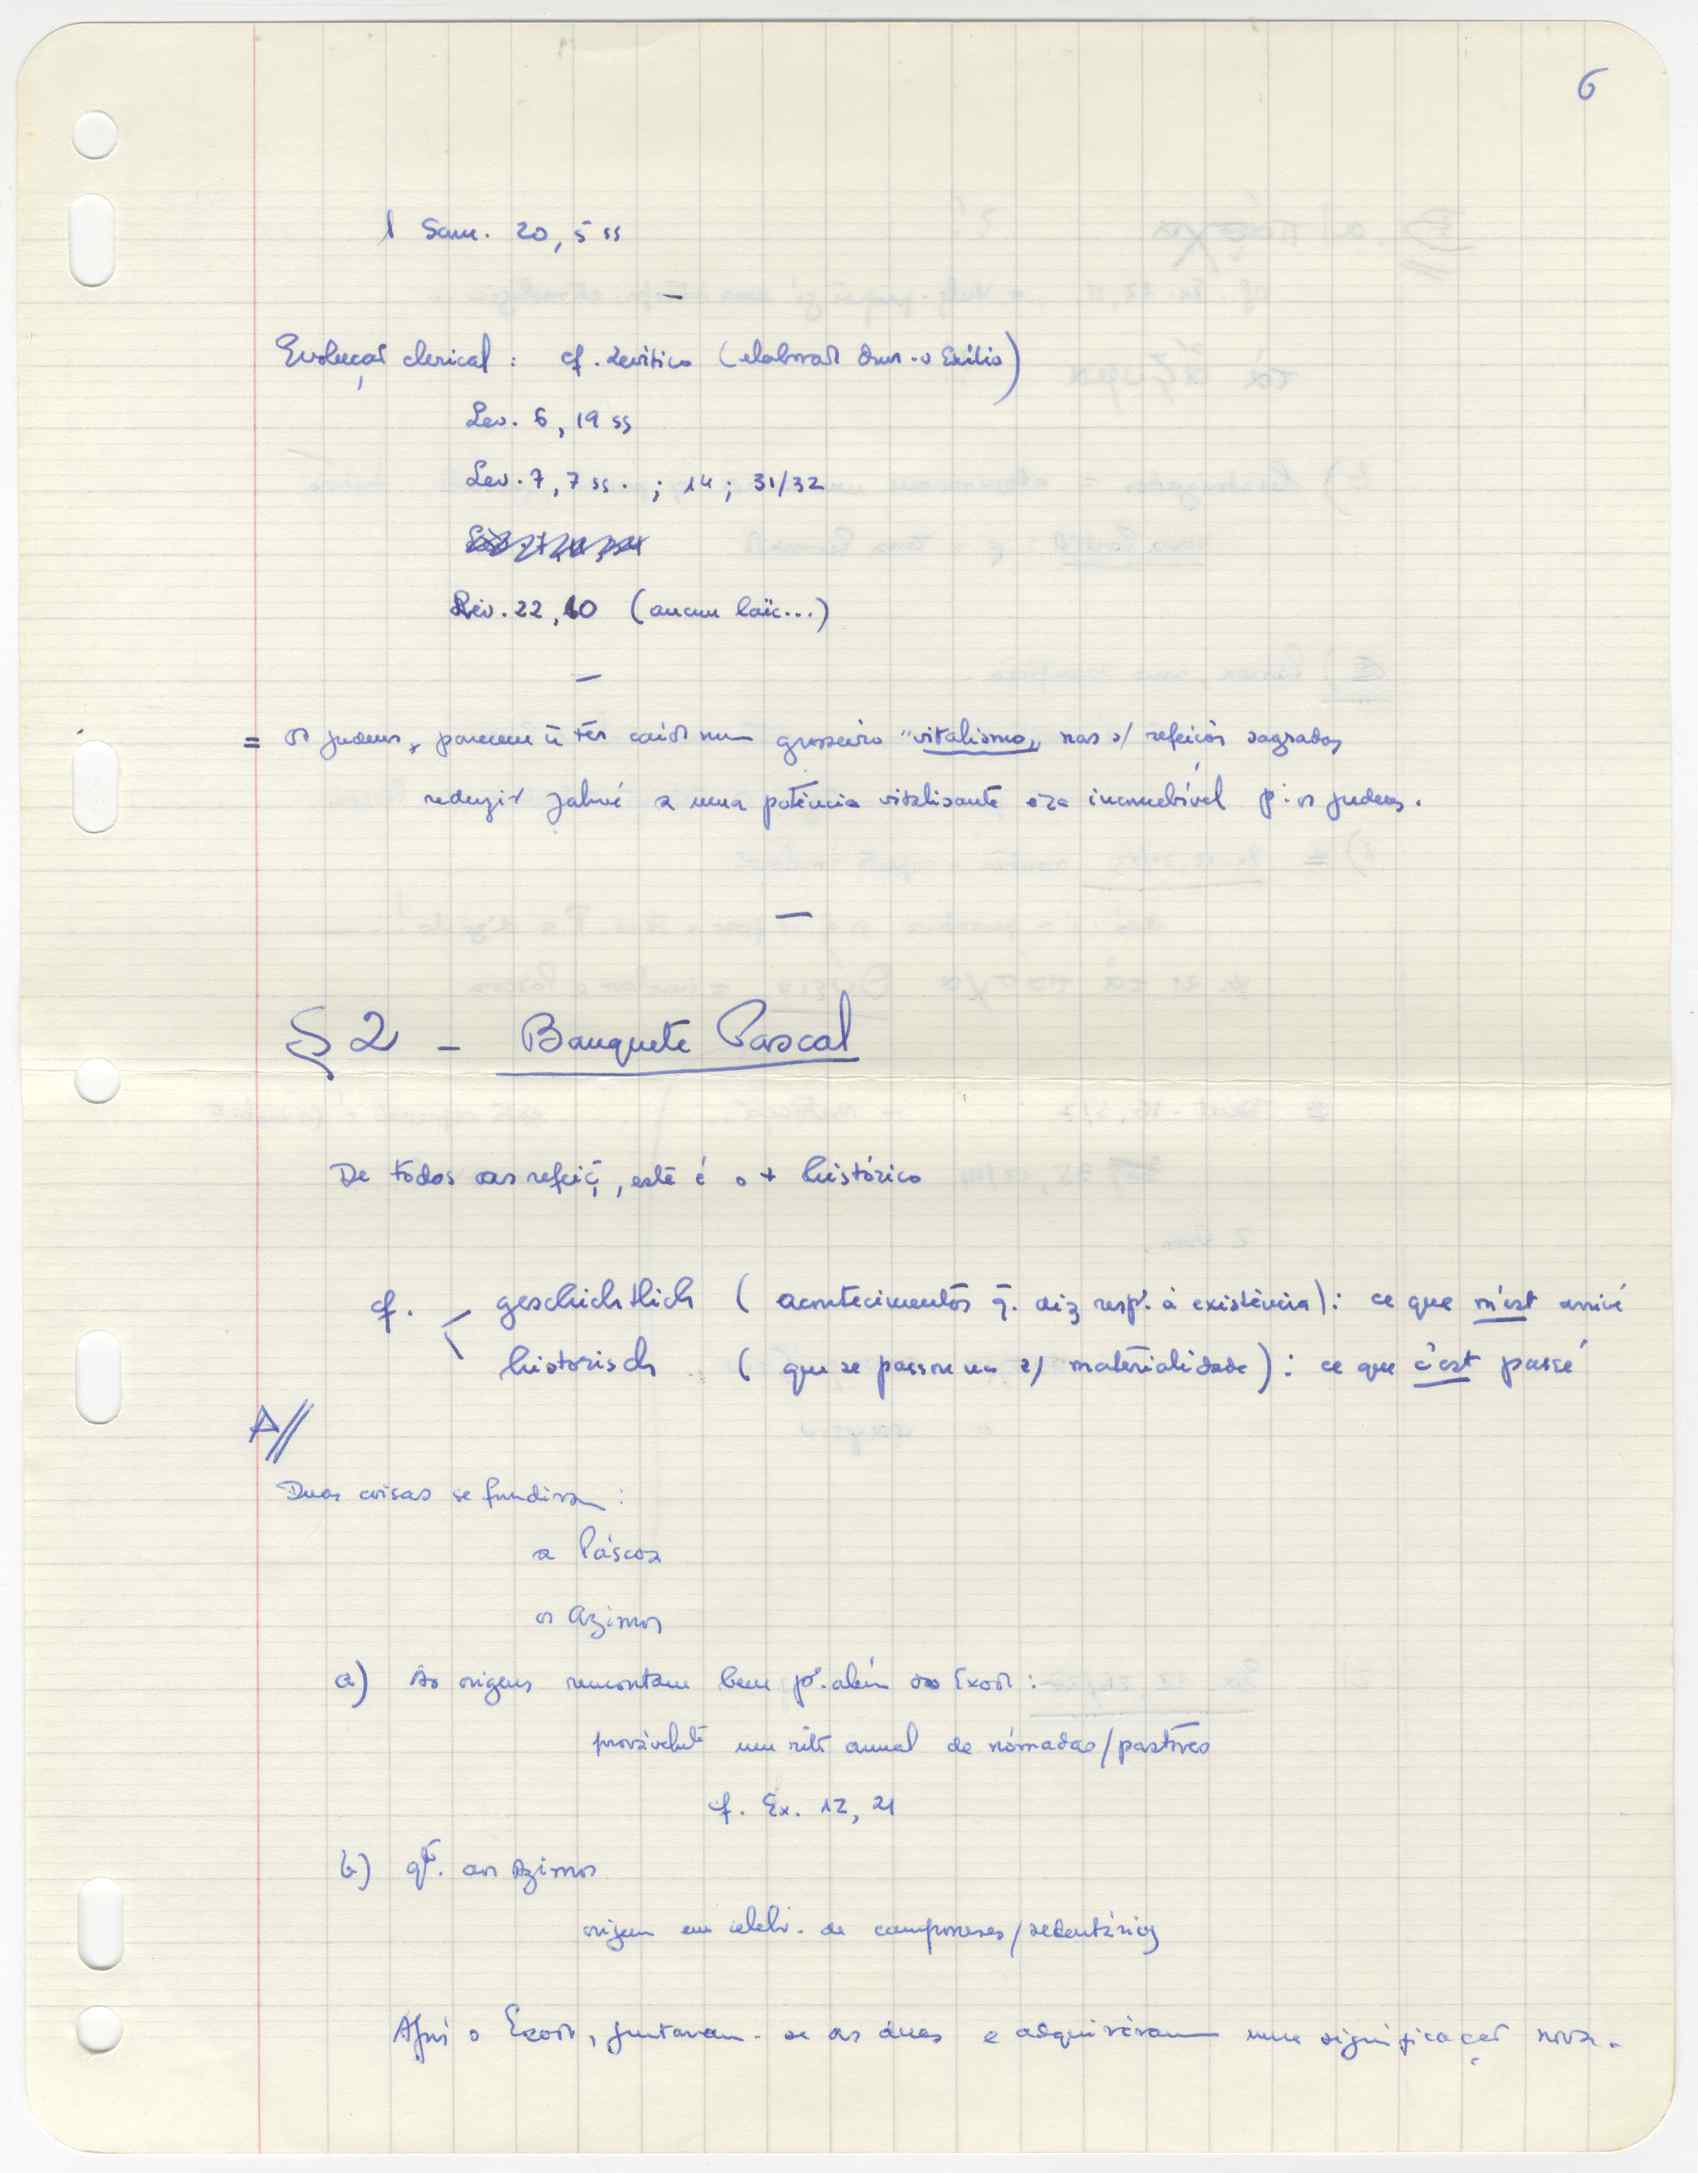 6
1 Sam. 20, 5 ss
—
Evolução clerical : cf. Levítico (elaborado dur. o Exílio)
Lev. 6, 19 ss
Lev. 7, 7 ss. ; 14 ; 31/32
Lev. 22, 10 (aucun laïc...)
—
= os judeus, parecem ñ ter caído num grosseiro "vitalismo" nas s/ refeições sagradas
reduzir Jahvé a uma potência vitalisante era inconcebível p. os judeus.
—
§ 2 - Banquete Pascal
De todos as refeiç., este é o + histórico
cf. geschichtlich ( acontecimentos q. diz resp. à existência) : ce que m'est arrivé
historisch ( que se passou na s/ materialidade) : ce que s'est passé
A//
Duas coisas se fundiram :
a Páscoa
os Azimos
a) As origens remontam bem p. além do Exodo :
provàvelmte um rito anual de nómadas/pastores
cf. Ex. 12, 21
b) qto. aos Azimos
origem em celebr. de camponeses/sedentários
Após o Exodo, juntaram-se as duas e adquiriram uma significação nova.